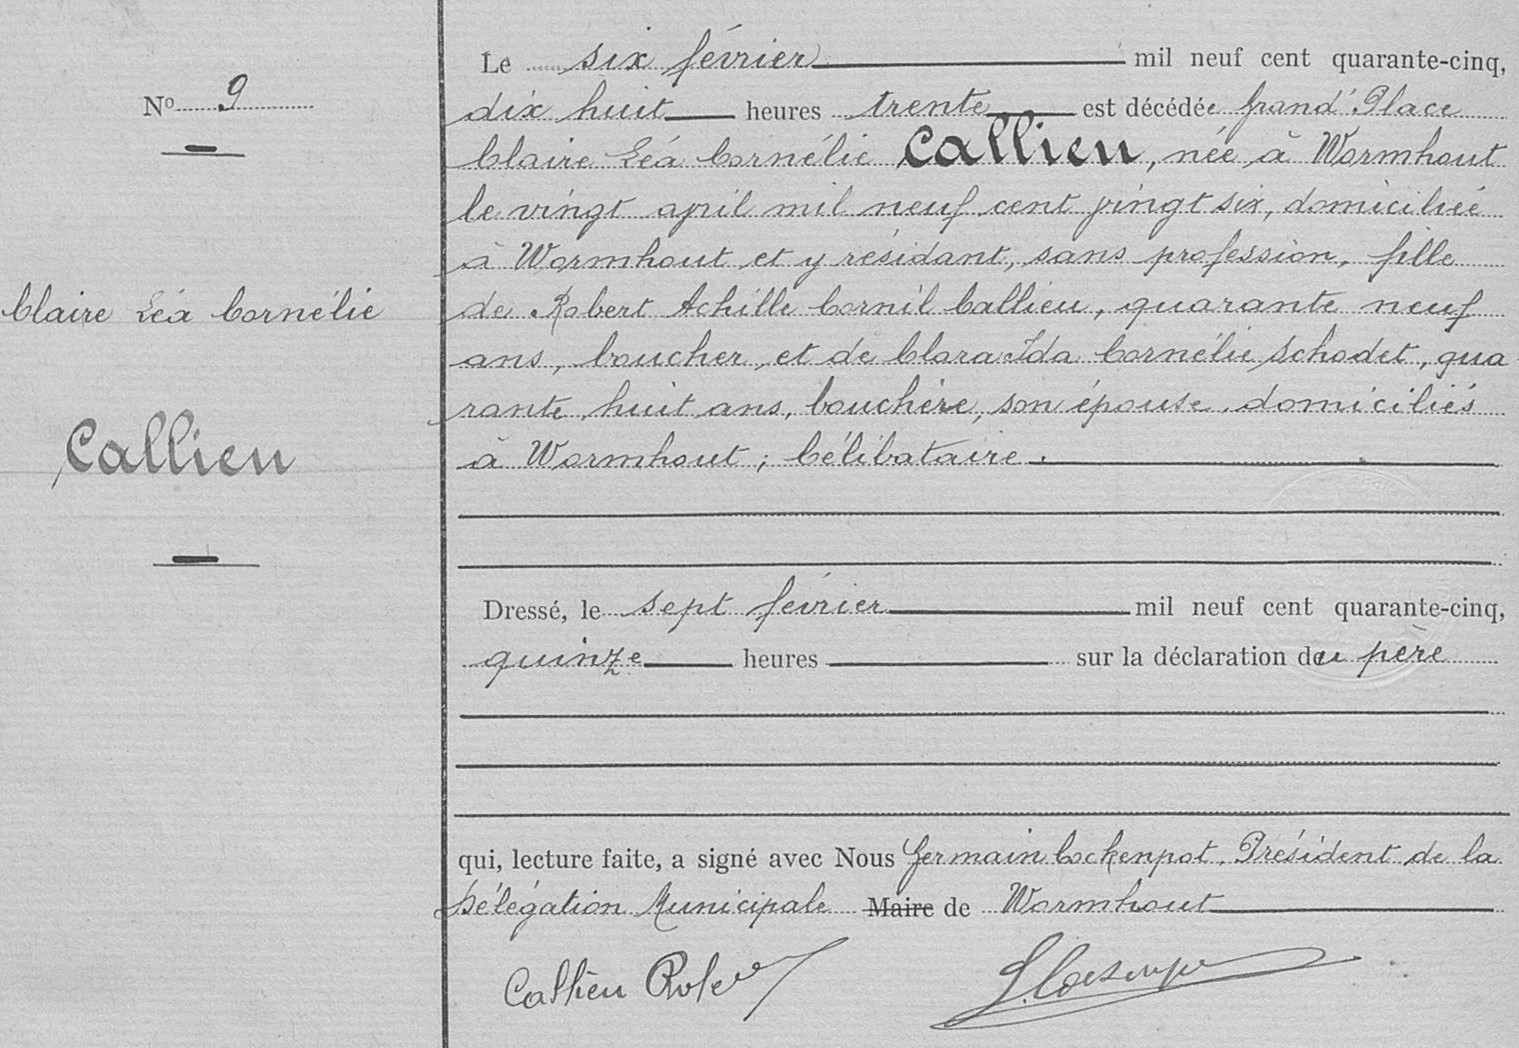 Nº 9
Claire Léa Cornélie
Callieu
Le six février mil neuf cent quarante-cinq,
dix huit heures trente est décédée Grand' Place
Claire Léa Cornélie Callieu, née à Wormhout
le vingt april mil neuf cent vingt six, domiciliée
à Wormhout et y résidant, sans profession, fille
de Robert Achille Cornil Callieu, quarante neuf
ans, boucher, et de Clara Ida Cornélie Schodet, qua
rante huit ans, bouchère, son épouse, domiciliés
à Wormhout ; Célibataire.
Dressé, le sept février mil neuf cent quarante-cinq,
quinze heures sur la déclaration du père
qui, lecture faite, a signé avec Nous Germain Cockenpot, Président de la
Délégation Municipale Maire de Wormhout
Callieu